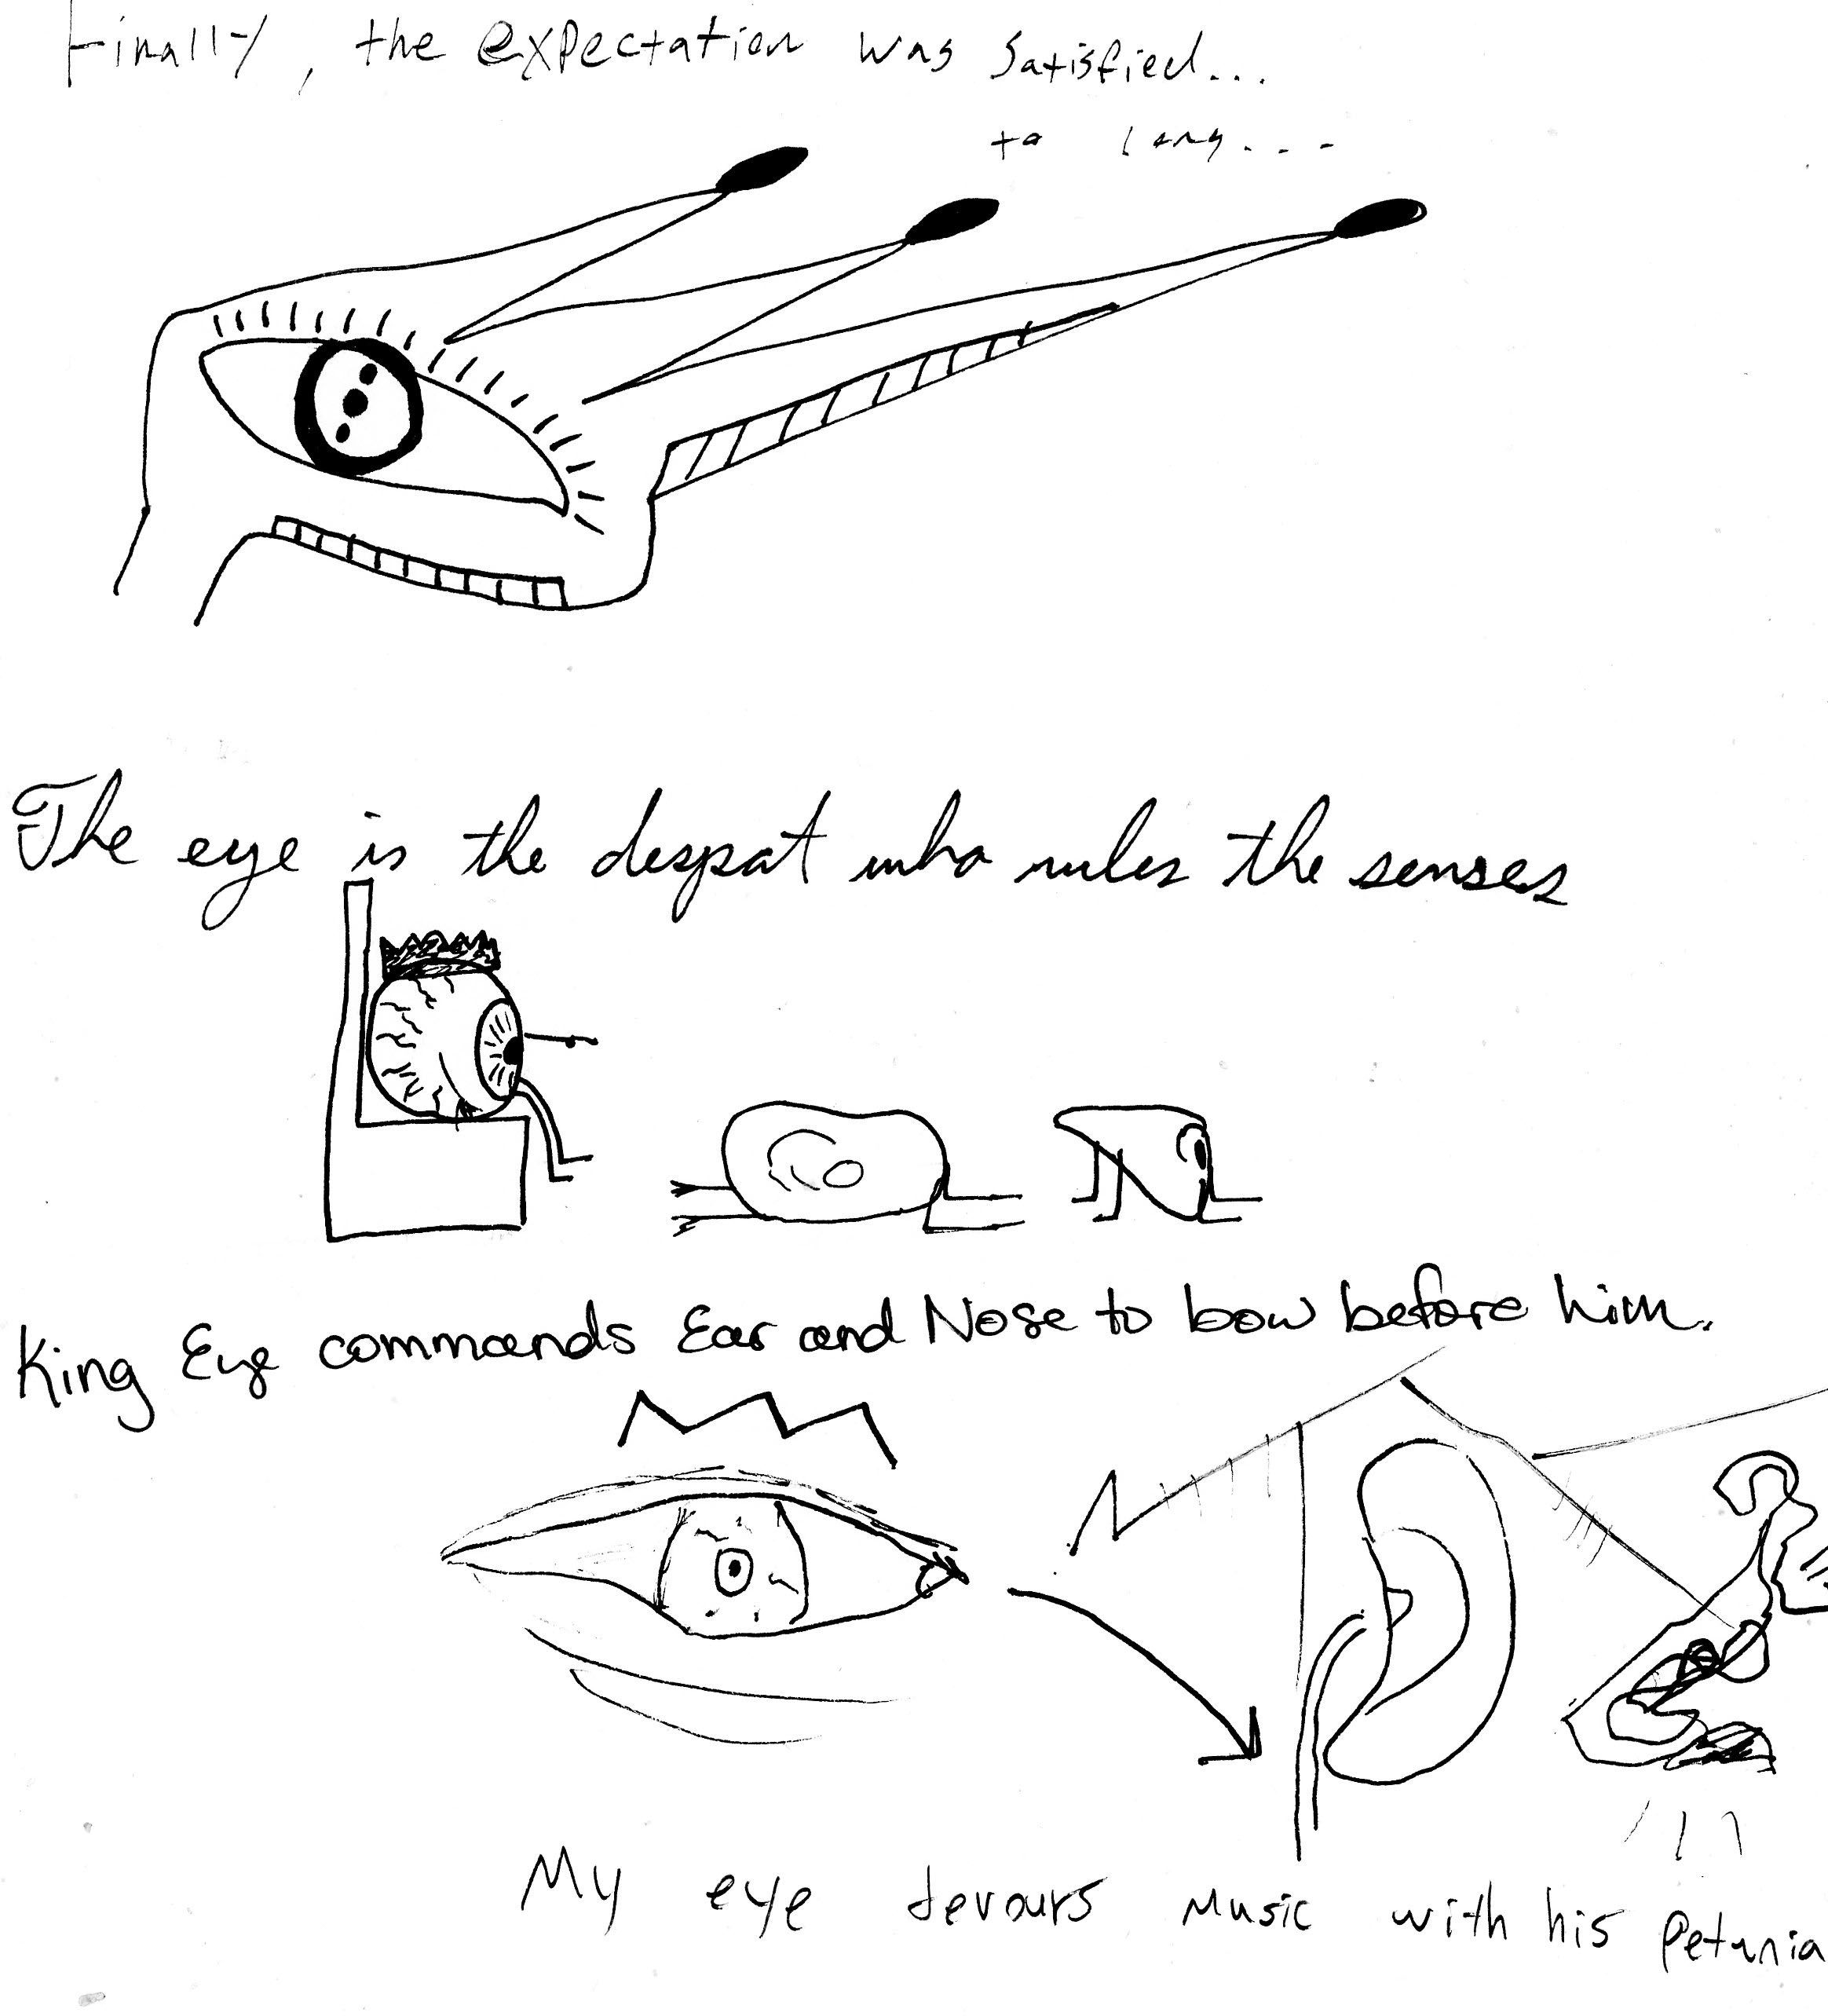 Finally, the expectation was satisfied...
to long...
The eye is the despot who rules the senses
King Eye commands Ear and Nose to bow before him.
My eye devours music with his petunia